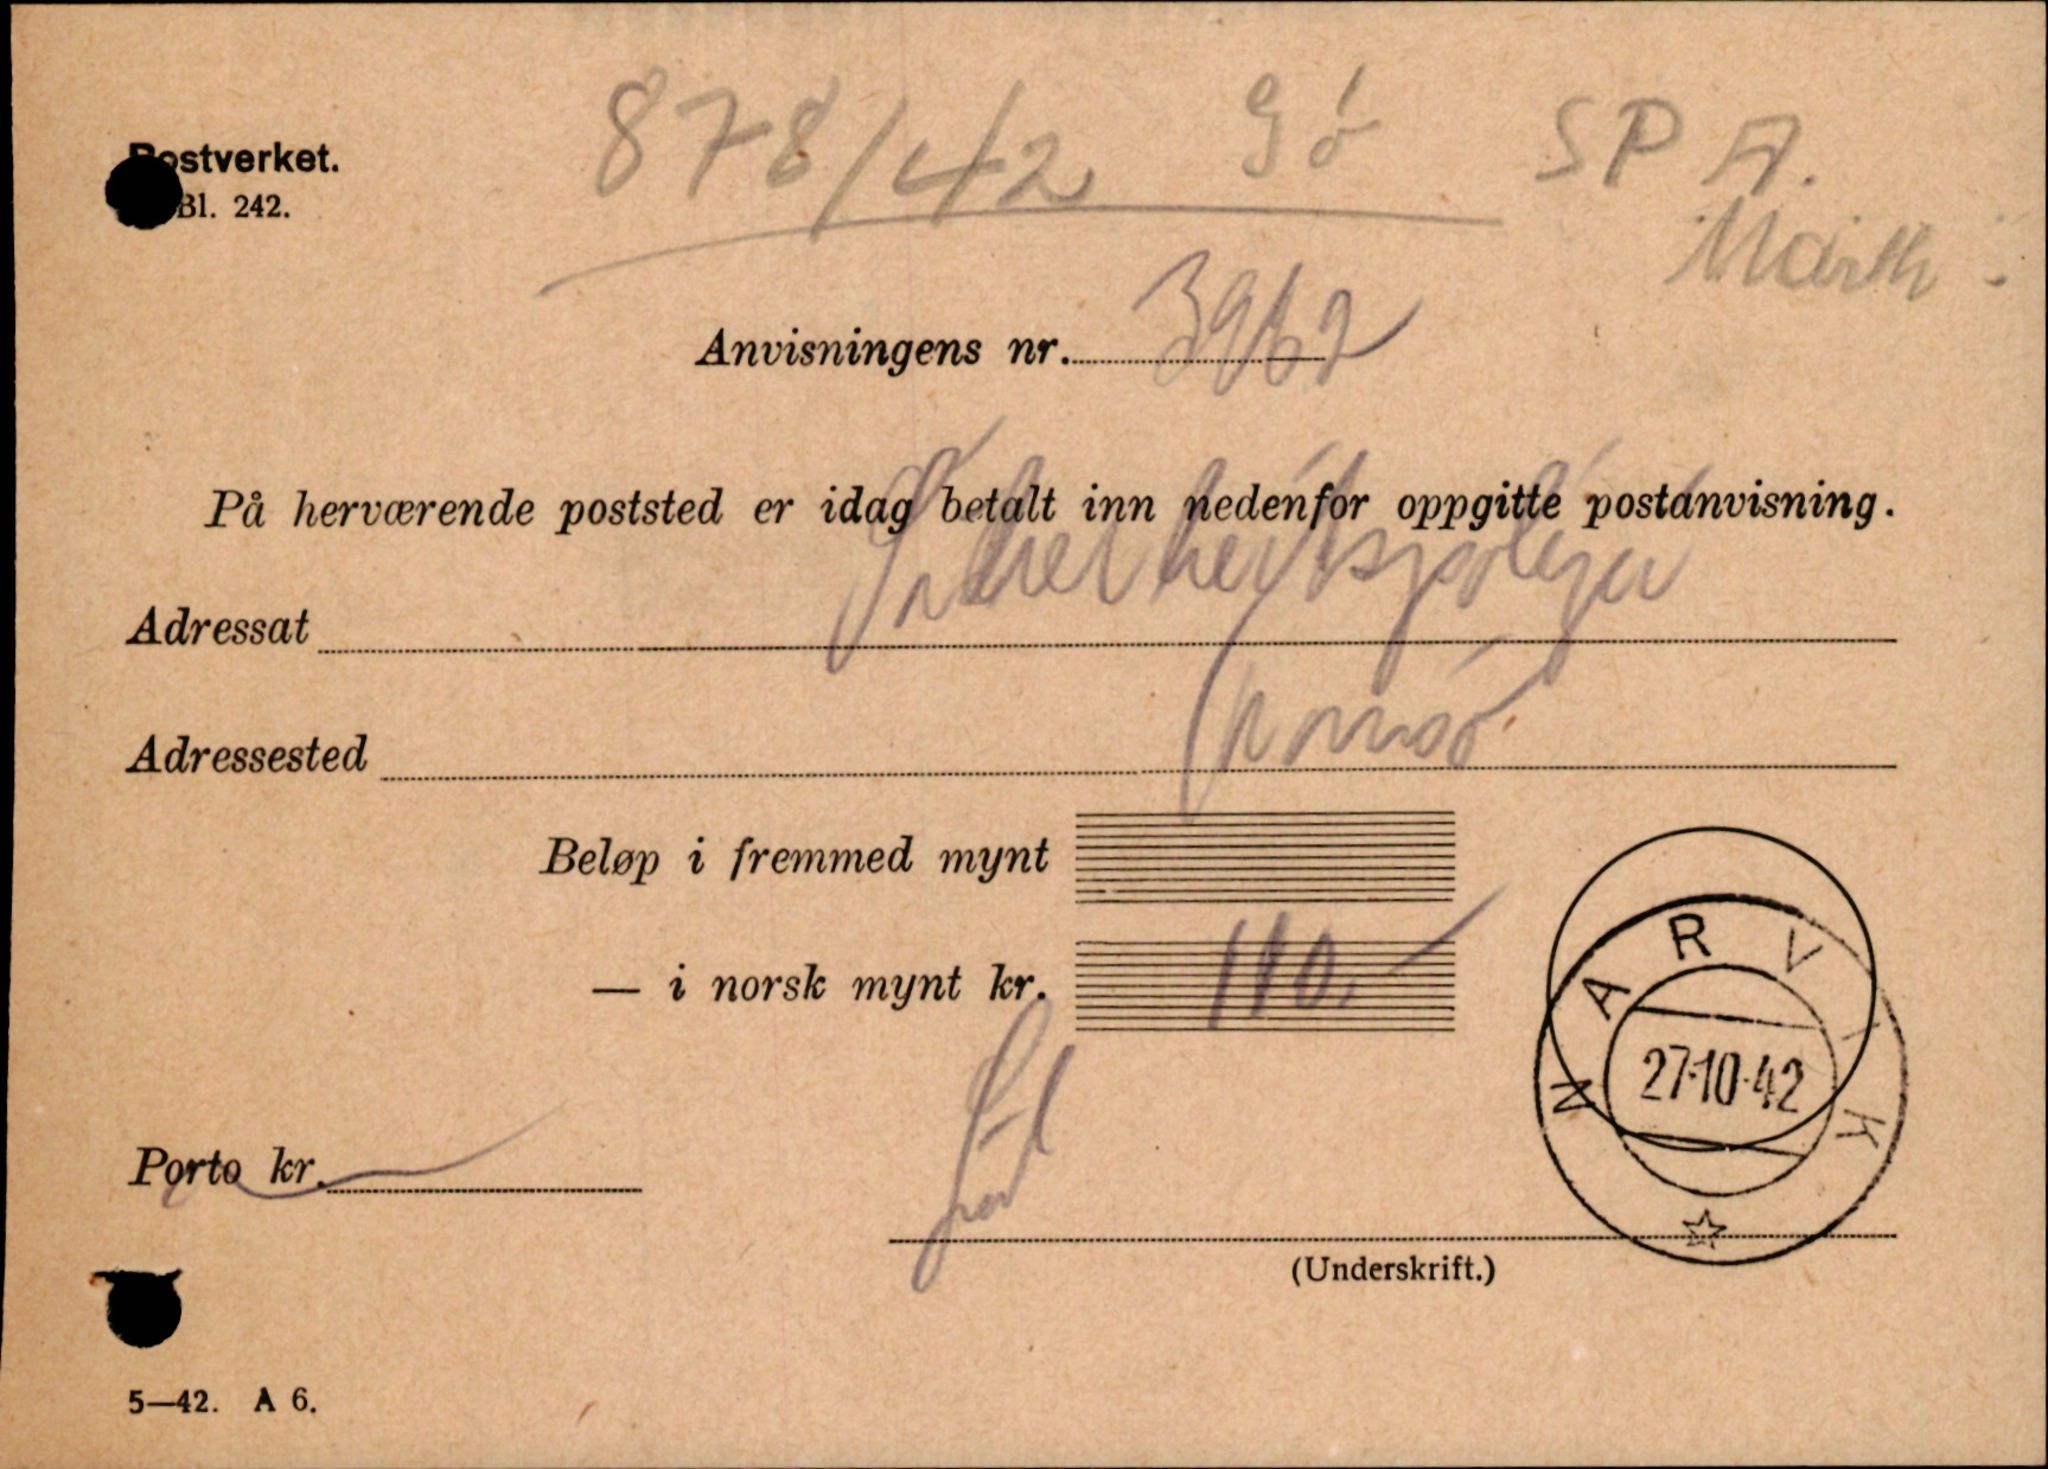 878/42 Gö SPA.
Postverket.
Bl. 242.
Märth
Anvisningens nr. 3962
På herværende poststed er idag betalt inn nedenfor oppgitte postanvisning.
Adressat Sikkerhetspolitiet
Adressested Tromsö
Beløp i fremmed mynt
— i norsk mynt kr. 110,-
NARVIK
27·10·42
Porto kr.
(Underskrift.)
5—42. A 6.